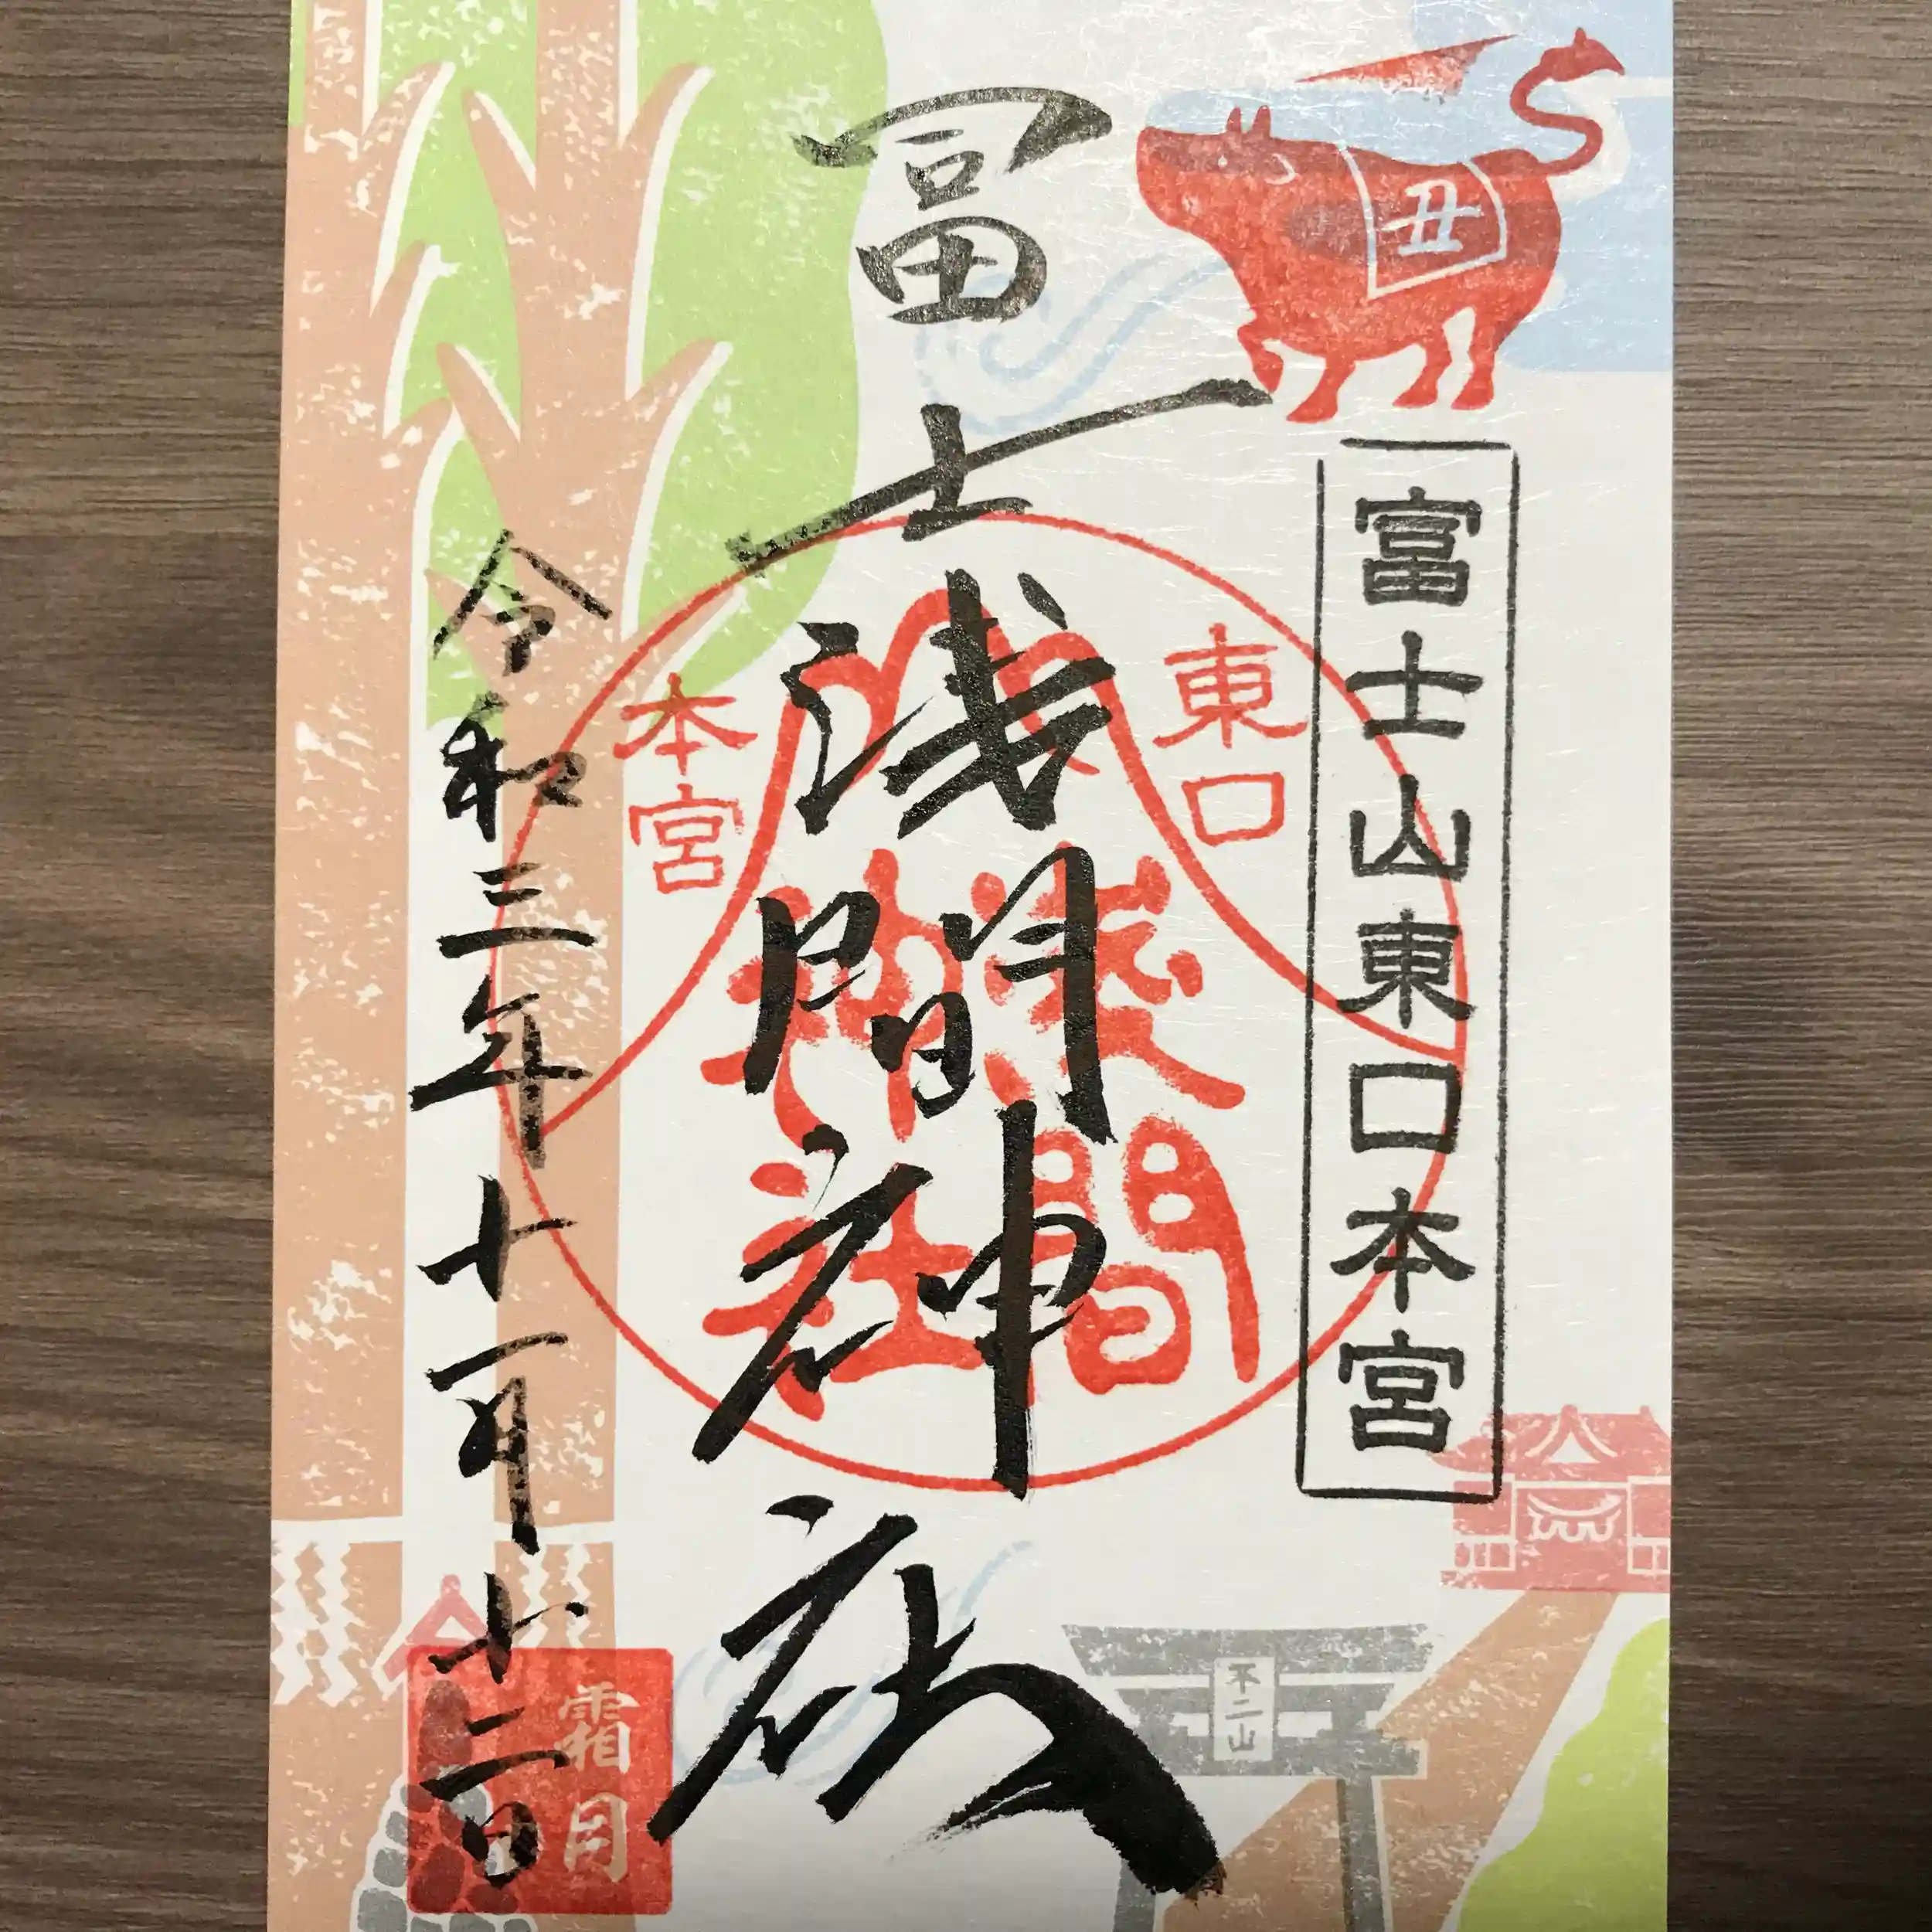 丑
富士山東口本宮
冨士浅間神社
東口
本宮
浅間
神社
令和三年十一月十二日
霜月
不二山